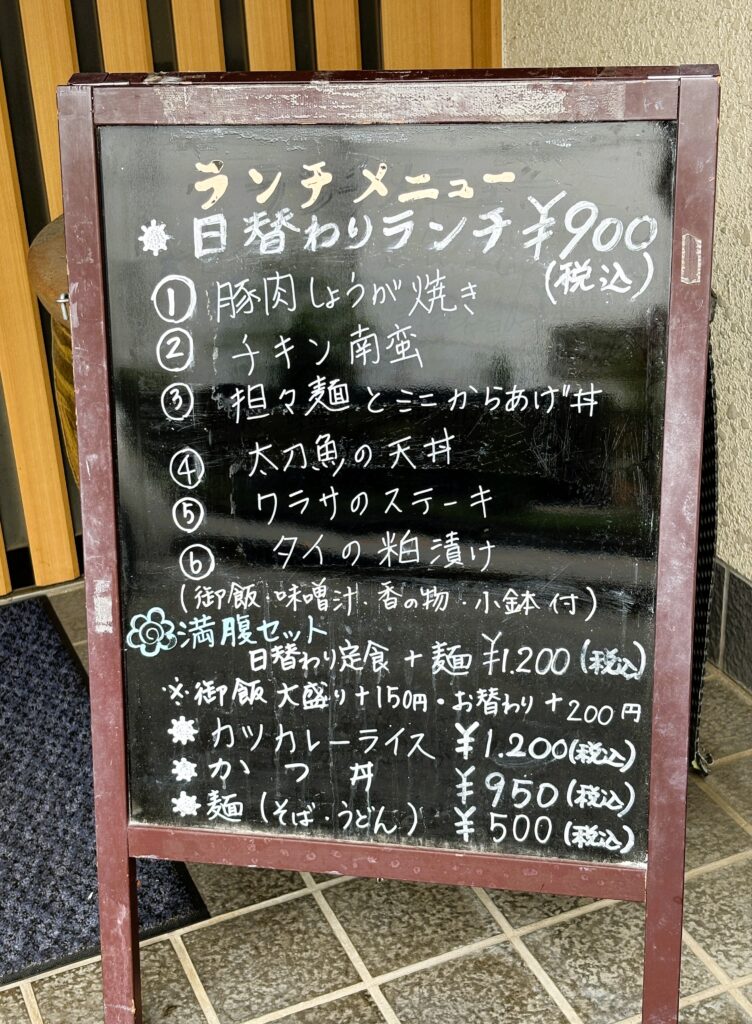 ランチメニュー
日替わりランチ ¥900
(税込)
① 豚肉しょうが焼き
② チキン南蛮
③ 担々麺とミニからあげ丼
④ 太刀魚の天丼
⑤ ワラサのステーキ
⑥ タイの粕漬け
(御飯・味噌汁・香の物・小鉢付)
満腹セット
日替わり定食+麺 ¥1.200(税込)
※御飯大盛り+150円・お替わり+200円
カツカレーライス ¥1.200(税込)
かつ丼 ¥950(税込)
麺(そば・うどん) ¥500(税込)